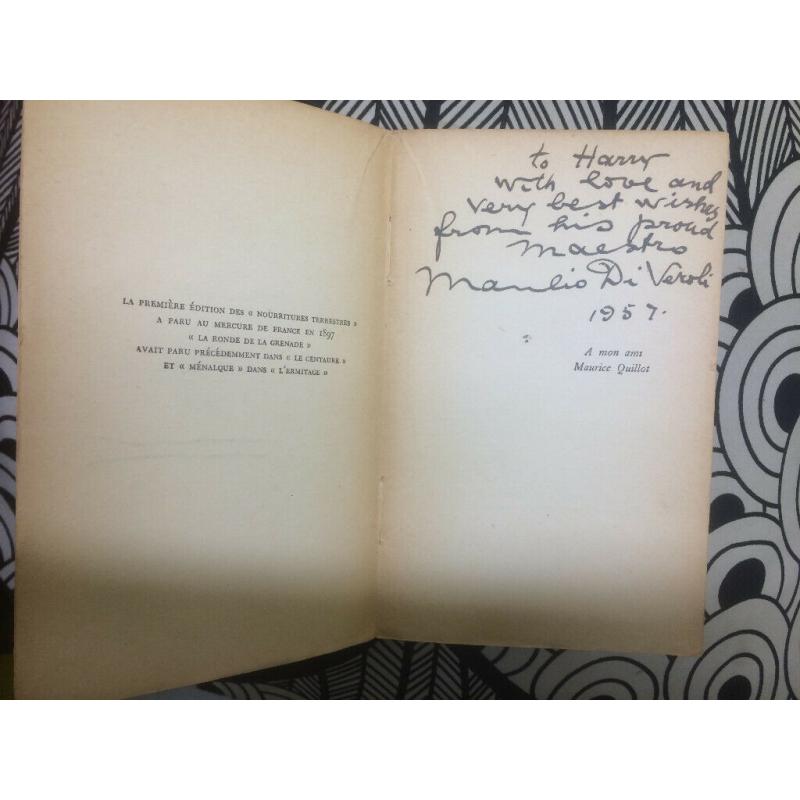 LA PREMIÈRE ÉDITION DES « NOURRITURES TERRESTRES »
A PARU AU MERCURE DE FRANCE EN 1897
« LA RONDE DE LA GRENADE »
AVAIT PARU PRÉCÉDEMMENT DANS « LE CENTAURE »
ET « MÉNALQUE » DANS « L'ERMITAGE »
to Harry
with love and
very best wishes
from his proud
Maestro
Manlio Di Veroli
1957.
A mon ami
Maurice Quillot